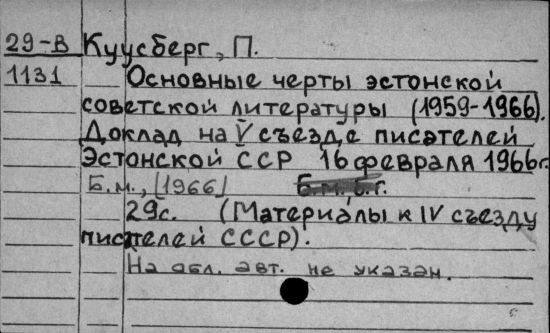 29-В Куусберг, П.
1131 Основные черты эстонской
советской литературы (1959-1966).
Доклад на V съезде писателей
Эстонской ССР 16 февраля 1966г.
Б.м., [1966] Б.м. б.г.
29с. (Материалы к IV съезду
писателей СССР).
На обл. авт. не указан.